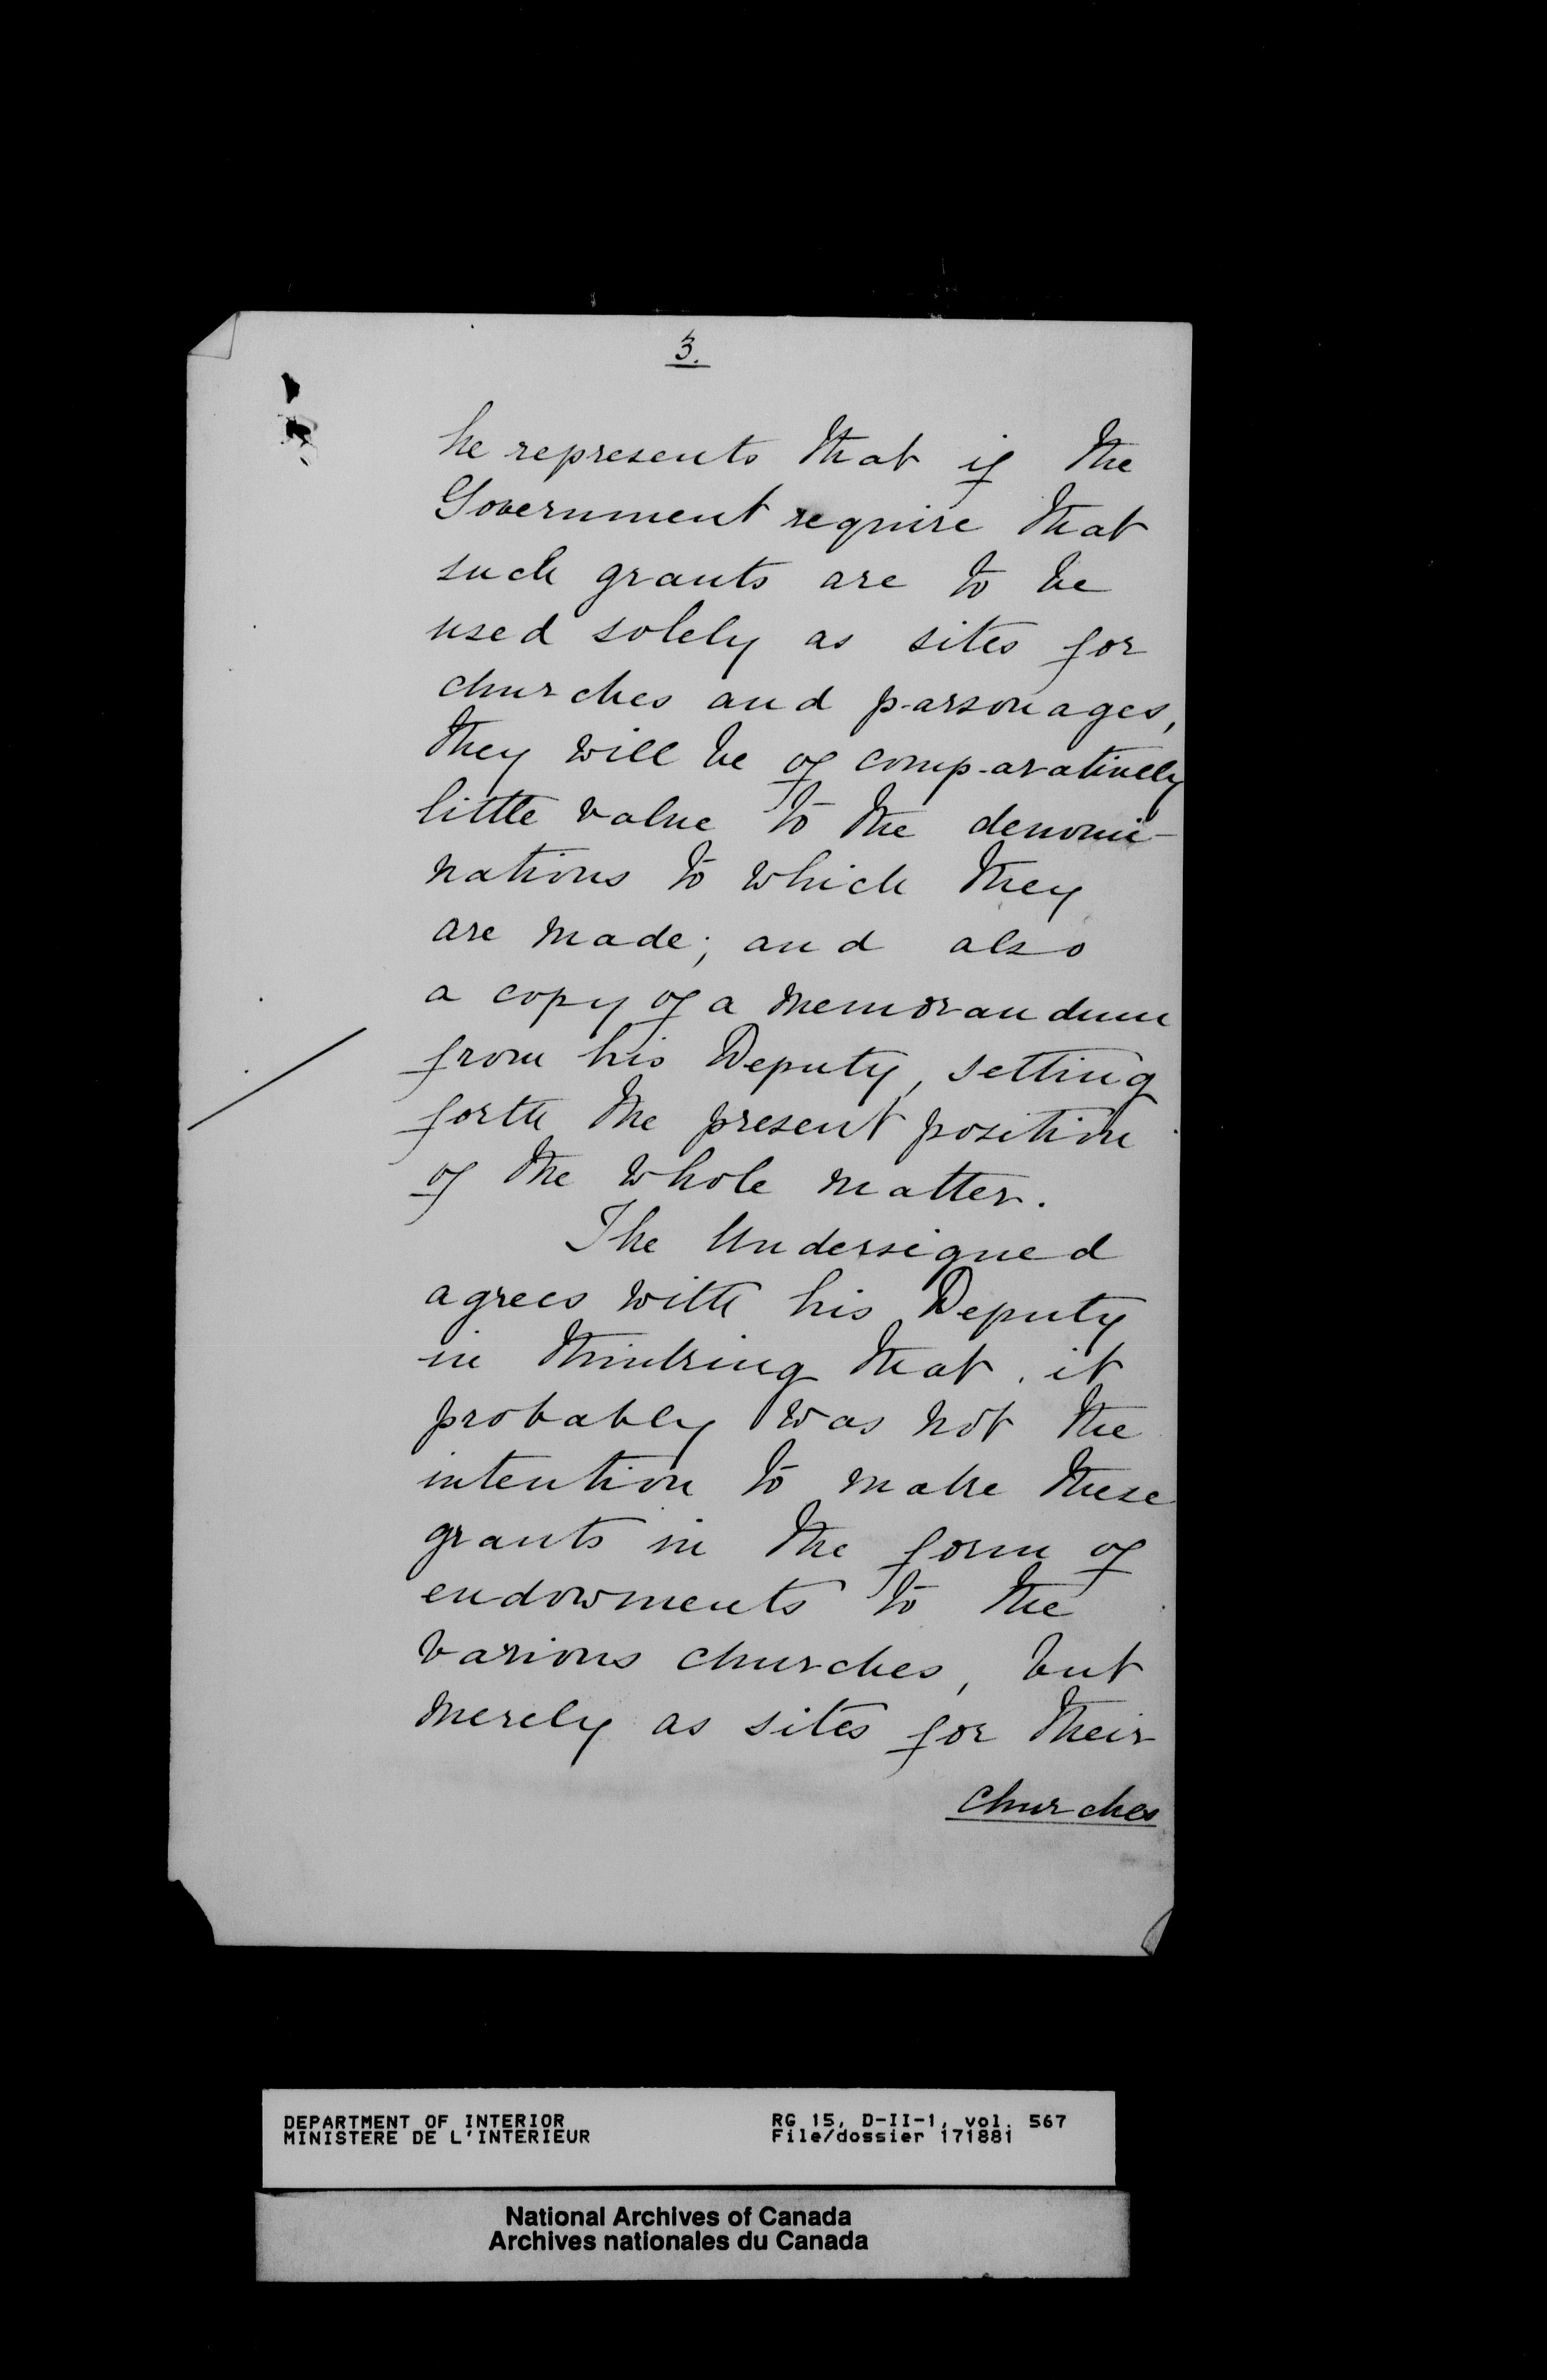 3.
he represents that if the
Government require that
such grants are to be
used solely as sites for
churches and parsonages,
they will be of comparatively
little value to the denomi-
nations to which they
are made; and also
a copy of a memorandum
from his Deputy, setting
forth the present position
of the whole matter.
The Undersigned
agrees with his Deputy
in thinking that it
probably was not the
intention to make these
grants in the form of
endowments to the
various churches, but
merely as sites for their
churches
DEPARTMENT OF INTERIOR
MINISTERE DE L'INTERIEUR
RG 15, D-II-1, vol. 567
File/dossier 171881
National Archives of Canada
Archives nationales du Canada